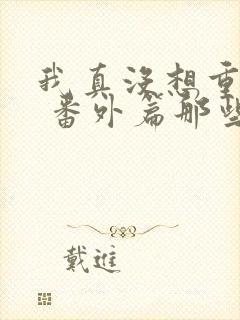 我真没想重
番外篇那些
戴進